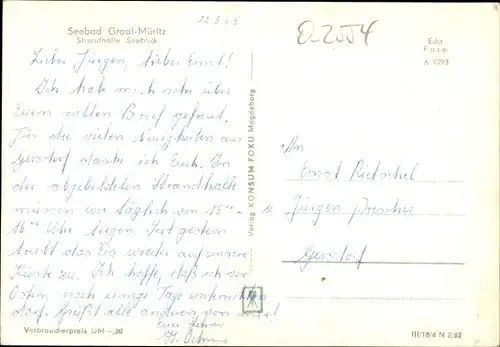 12.3.63
Seebad Graal-Müritz
Strandhalle Seeblick
O-2554
Echt
Foto
A 9293
Lieber Jürgen, lieber Ernst!
Ich habe mich sehr über
Euern netten Brief gefreut.
Für die vielen Neuigkeiten aus
Gersdorf danke ich Euch. In
der abgebildeten Strandhalle
müssen wir täglich von 15⁰⁰-
16⁰⁰ Uhr liegen. Seit gestern
treibt das Eis wieder auf unsere
Küste zu. Ich hoffe, daß ich vor
Ostern noch einige Tage unterrichten
darf. Grüßt alle anderen von mir!
Euer Lehrer
Verlag KONSUM FOKU Magdeburg
An
Ernst Rietschel
Jürgen
Gersdorf
Verbraucherpreis DM -,20
III/18/6 N 2/62